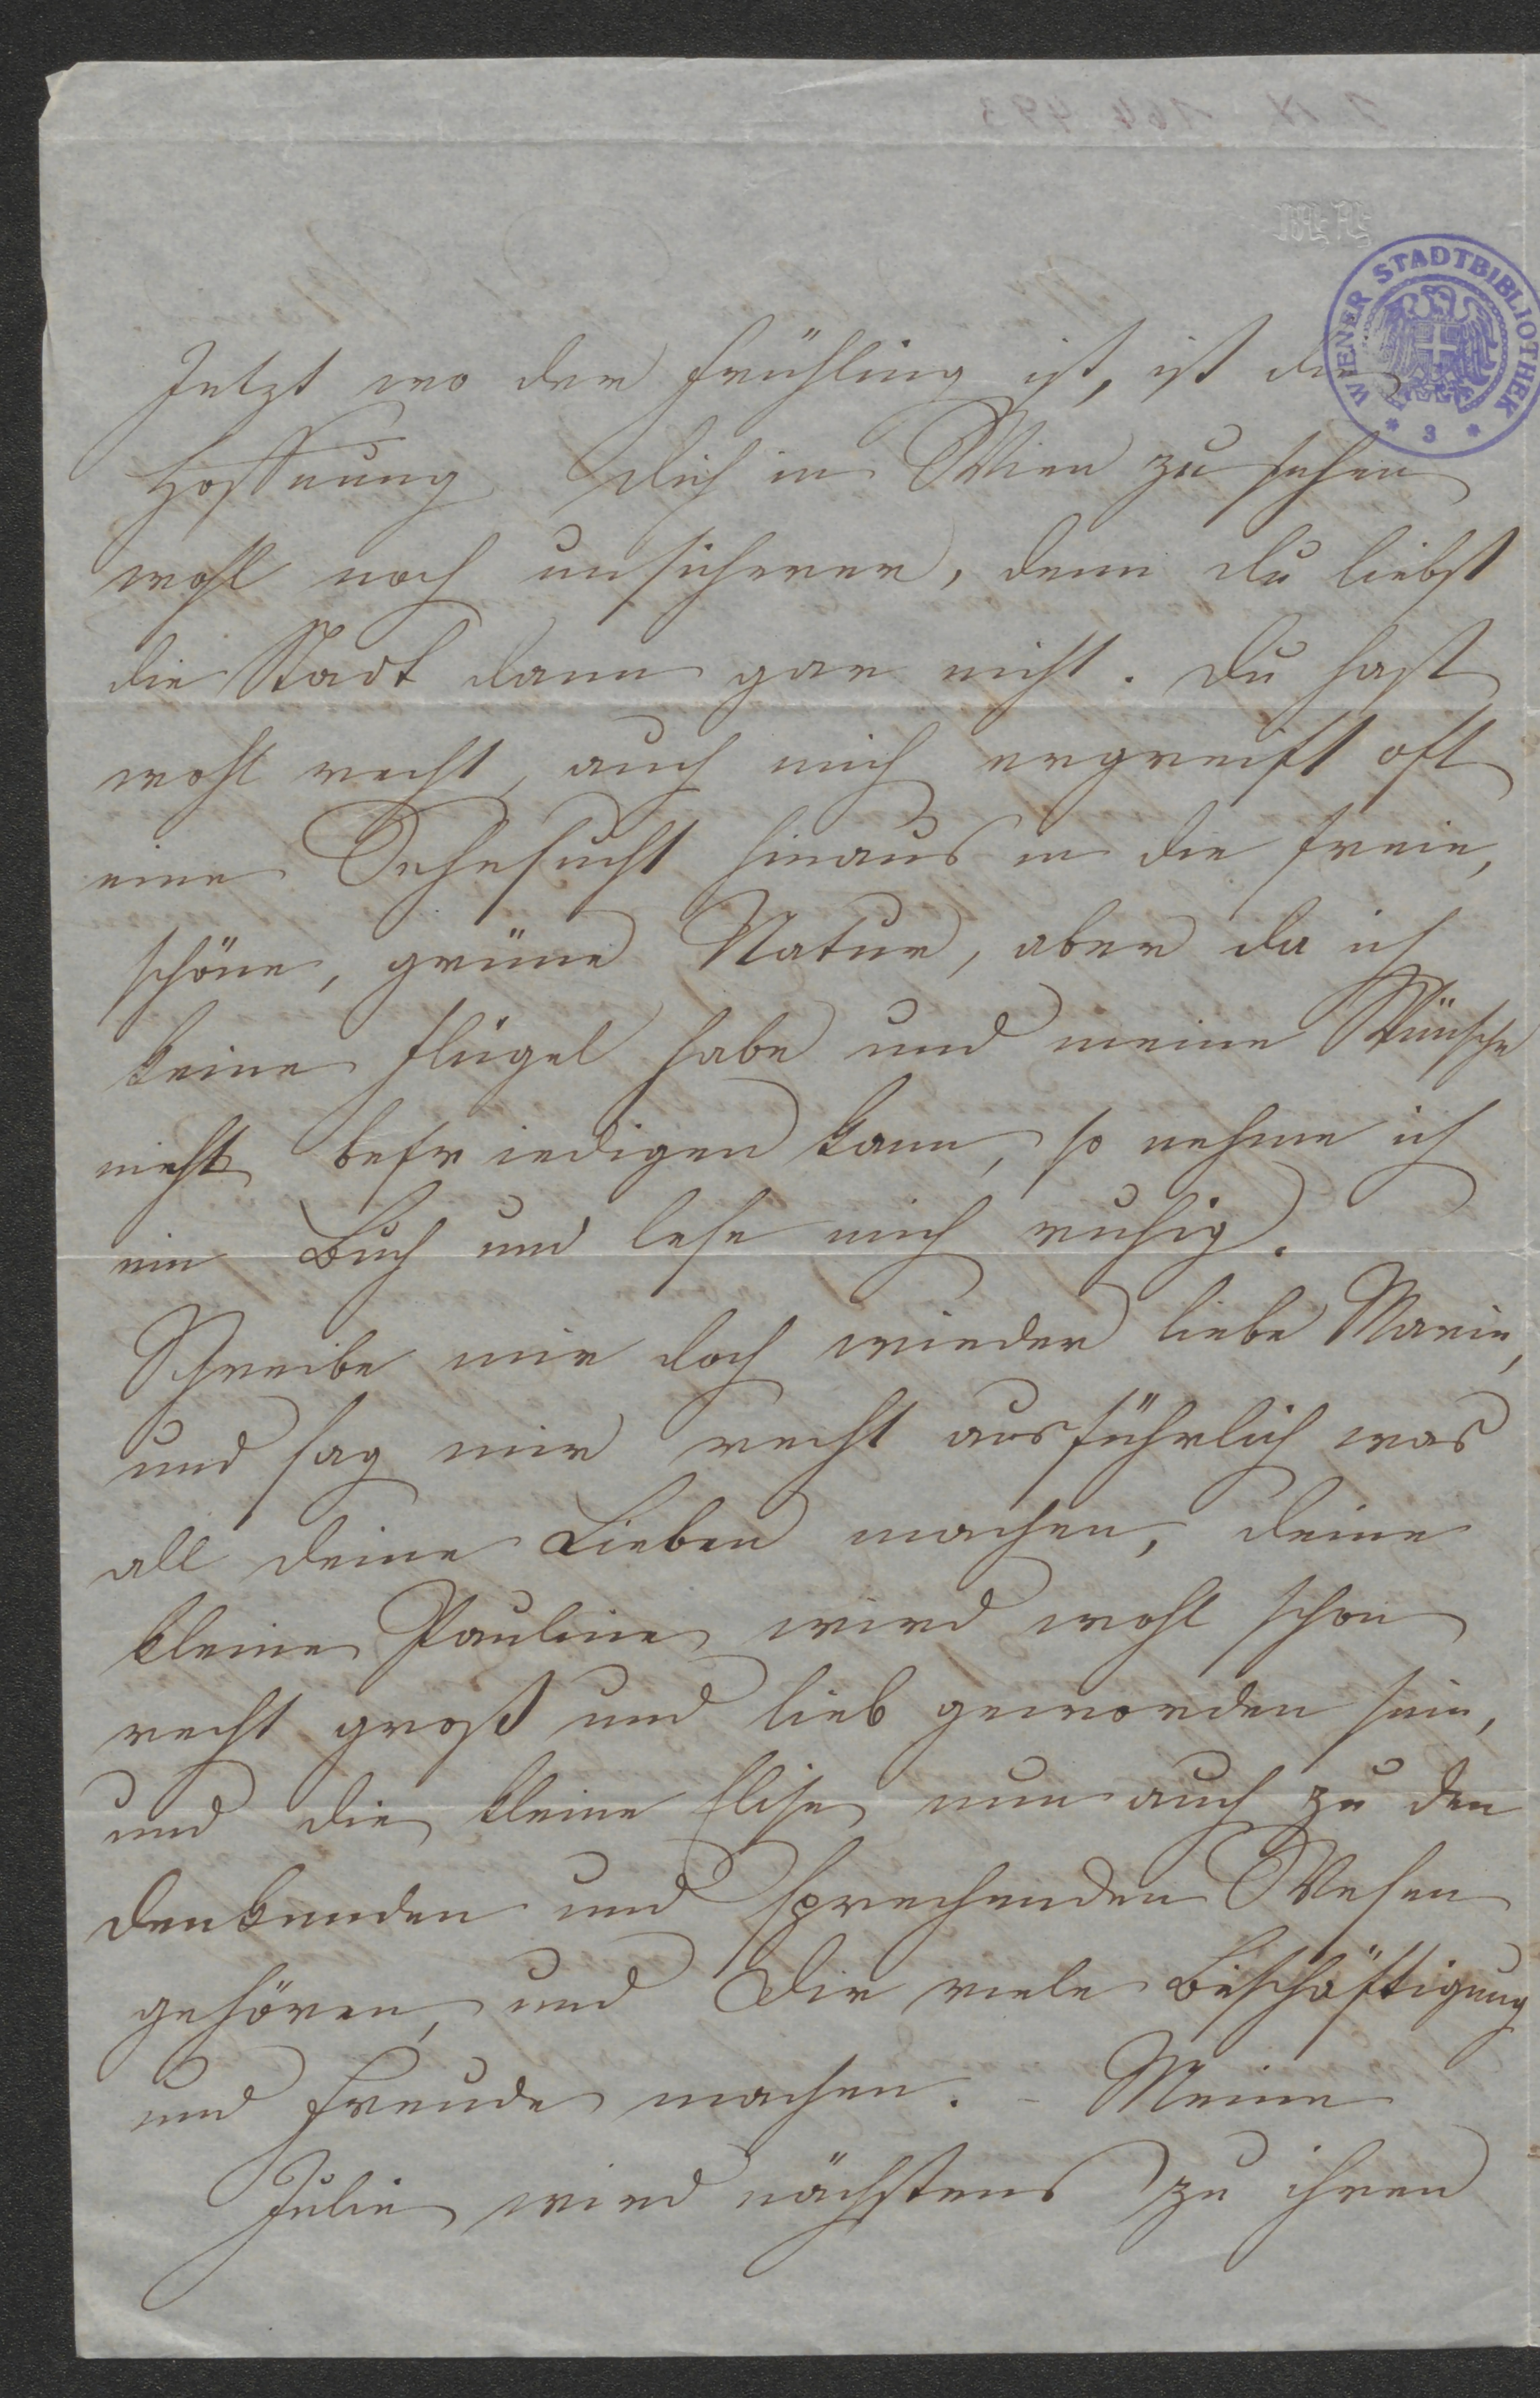 WIENER STADTBIBLIOTHEK
* 3 *
Jetzt wo der Frühling ist, ist die
Hoffnung Dich in Wien zu sehen
wohl noch unsicherer, denn Du liebst
die Stadt dann gar nicht. Du hast
wohl recht, auch mich ergreift oft
eine Sehnsucht hinaus in die freie,
schöne, grüne Natur, aber da ich
keine Flügel habe und meine Wünsche
nicht befriedigen kann, so nehme ich
ein Buch und lese mich ruhig.
Schreibe mir doch wieder liebe Marie,
und sag mir recht ausführlich was
all deine Lieben machen, deine
kleine Pauline wird wohl schon
recht groß und lieb geworden sein,
und die kleine Elise nun auch zu den
denkenden und sprechenden Wesen
gehören, und Dir viele Beschäftigung
und Freude machen. – Meine
Julie wird nächstens zu ihren